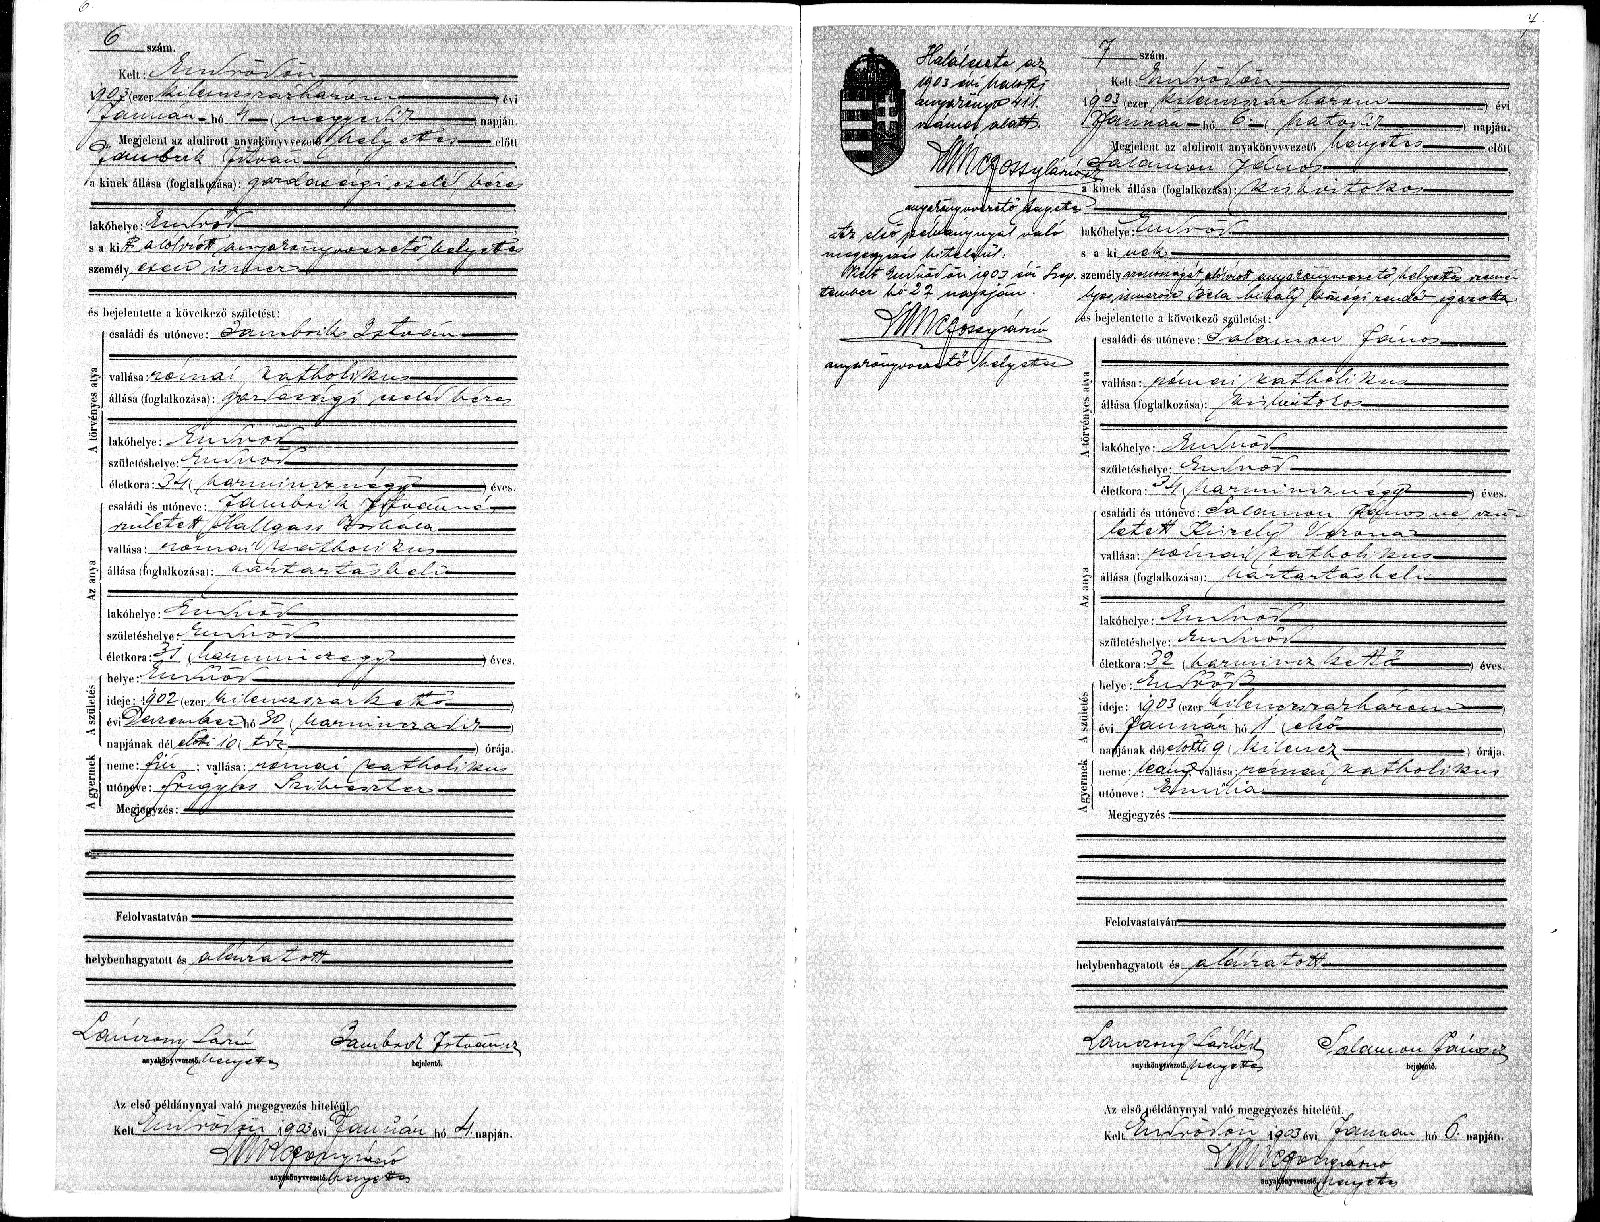 6
6 szám.
Kelt: Endrődön
1903 (ezer kilencszázhárom) évi
Január hó 4 (negyedik) napján.
Megjelent az alulirott anyakönyvvezető helyettes előtt
István
a kinek állása (foglalkozása): gazdasági cseléd béres
lakóhelye: Endrőd
s a kit alulírott anyakönyvvezető helyettes
személyesen ismer
és bejelentette a következő születést:
A törvényes atya
családi és utóneve: István
vallása: római katholikus
állása (foglalkozása): gazdasági cseléd béres
lakóhelye: Endrőd
születéshelye: Endrőd
életkora: 34 (harmincznégy) éves.
Az anya
családi és utóneve: Istvánné
született Borbála
vallása: római katholikus
állása (foglalkozása): háztartásbeli
lakóhelye: Endrőd
születéshelye: Endrőd
életkora: 31 (harminczegy) éves.
A születés
helye: Endrőd
ideje: 1902 (ezer kilencszázkettő)
évi Deczember hó 30 (harminczadik)
napjának délelőtti 10 (tíz) órája.
A gyermek
neme: fiú; vallása: római katholikus
utóneve: Szilveszter
Megjegyzés:
Felolvastatván
helybenhagyatott és aláíratott
István
anyakönyvvezető helyettes bejelentő.
Az első példánynyal való megegyezés hiteléül.
Kelt Endrődön 1903 évi Január hó 4. napján.
anyakönyvvezető helyettes
7
Halálesete az
1903 évi halotti
anyakönyv 411.
számú alatt.
anyakönyvvezető helyettes
Az első példánynyal való
megegyezés hiteléül.
Kelt Endrődön 1903 évi Szep-
tember hó 22 napján
anyakönyvvezető helyettes
7 szám.
Kelt Endrődön
1903 (ezer kilencszázhárom) évi
Január hó 6. (hatodik) napján.
Megjelent az alulirott anyakönyvvezető helyettes előtt
Salamon János
a kinek állása (foglalkozása): kisbirtokos
lakóhelye: Endrőd
s a kinek
személyazonosságát alulírott anyakönyvvezető helyettes szemé-
lyes ismerőse Béla Mihály községi rendőr igazolta
és bejelentette a következő születést:
A törvényes atya
családi és utóneve: Salamon János
vallása: római katholikus
állása (foglalkozása): kisbirtokos
lakóhelye: Endrőd
születéshelye: Endrőd
életkora: 34 (harmincznégy) éves.
Az anya
családi és utóneve: Salamon Jánosné szü-
letett Király Verona
vallása: római katholikus
állása (foglalkozása): háztartásbeli
lakóhelye: Endrőd
születéshelye: Endrőd
életkora: 32 (harminczkettő) éves.
A születés
helye: Endrőd
ideje: 1903 (ezer kilencszázhárom)
évi Január hó 1 (első)
napjának délelőtti 9 (kilencz) órája.
A gyermek
neme: leány; vallása: római katholikus
utóneve: Emília
Megjegyzés
Felolvastatván
helybenhagyatott és aláíratott
Salamon János
anyakönyvvezető helyettes bejelentő.
Az első példánynyal való megegyezés hiteléül.
Kelt Endrődön 1903 évi Január hó 6. napján.
anyakönyvvezető helyettes